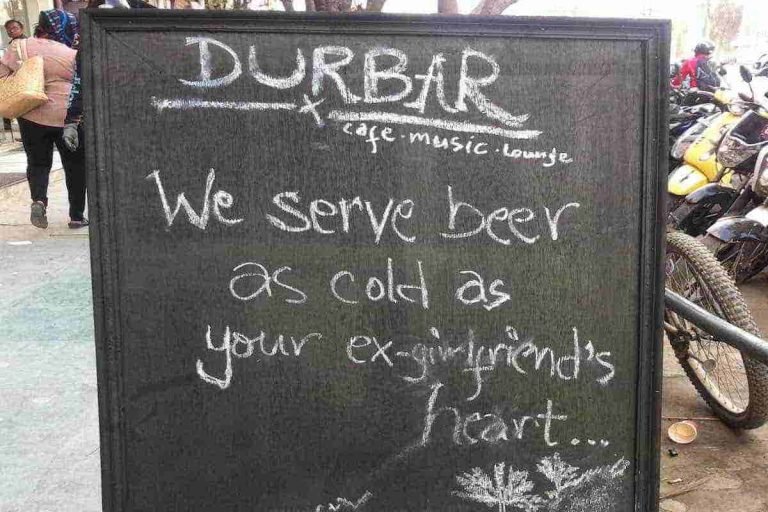 DURBAR
cafe · music · lounge
We serve beer
as cold as
your ex-girlfriend's
heart...